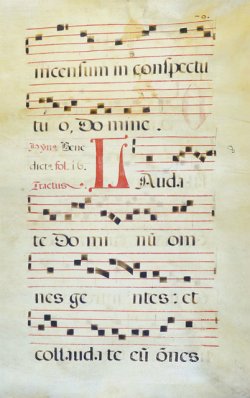 incensum in conspectu
tu o, Do mine.
Bene
dicta fol. 16.
Tractus
L Auda
te Do mi nū om
nes ge ntes: et
collauda te eū ōnes